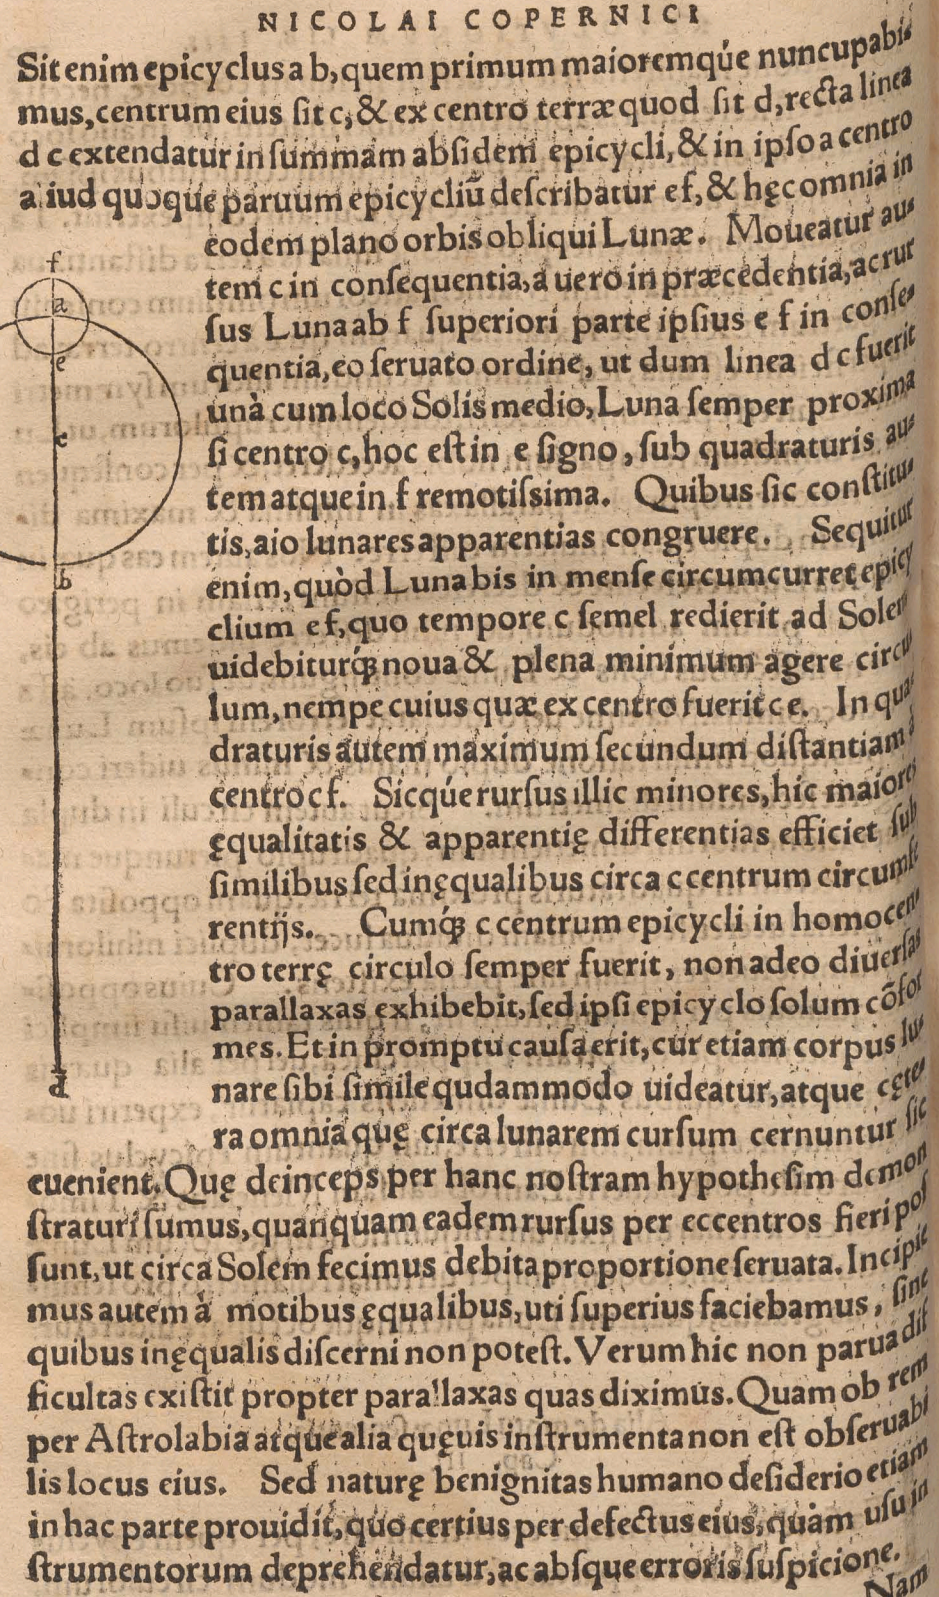 NICOLAI COPERNICI
Sit enim epicyclus a b, quem primum maioremq́ue nuncupabi⸗
mus, centrum eius sit c, & ex centro terræ quod sit d, recta linea
d c extendatur in summam absidem epicycli, & in ipso a centro
aliud quoque paruum epicycliũ describatur e f, & hęc omnia in
eodem plano orbis obliqui Lunæ. Moueatur au⸗
tem c in consequentia, a uero in præcedentia, ac rur
sus Luna ab f superiori parte ipsius e f in conse⸗
quentia, eo seruato ordine, ut dum linea d c fuerit
unà cum loco Solis medio, Luna semper proxima
si centro c, hoc est in e signo, sub quadraturis au⸗
tem atque in f remotissima. Quibus sic constitu⸗
tis, aio lunares apparentias congruere. Sequitur
enim, quòd Luna bis in mense circumcurret epicy
clium e f, quo tempore c semel redierit ad Solem
uidebiturq́ꝫ noua & plena minimum agere circu
lum, nempe cuius quæ ex centro fuerit c e. In qua
draturis autem maximum secundum distantiam à
centro c f. Sicq́ue rursus illic minores, hic maiores
ęqualitatis & apparentię differentias efficiet sub
similibus sed inęqualibus circa c centrum circumfe
rentijs. Cumq́ꝫ c centrum epicycli in homocen
tro terrę circulo semper fuerit, non adeo diuersas
parallaxas exhibebit, sed ipsi epicyclo solum cõfor
mes. Et in promptu causa erit, cur etiam corpus lu⸗
nare sibi simile qudammodo uideatur, atque cęte⸗
ra omnia quę circa lunarem cursum cernuntur sic
euenient. Quę deinceps per hanc nostram hypothesim demon
straturi sumus, quanquam eadem rursus per eccentros fieri pos
sunt, ut circa Solem fecimus debita proportione seruata. Incipie
mus autem à motibus ęqualibus, uti superius faciebamus, sine
quibus inęqualis discerni non potest. Verum hic non parua dif
ficultas existit propter parallaxas quas diximus. Quam ob rem
per Astrolabia atque alia quęuis instrumenta non est obseruabi
lis locus eius. Sed naturę benignitas humano desiderio etiam
in hac parte prouidit, quo certius per defectus eius, quàm usu in
strumentorum deprehendatur, ac absque erroris suspicione.
Nam
f
a
e
c
b
d